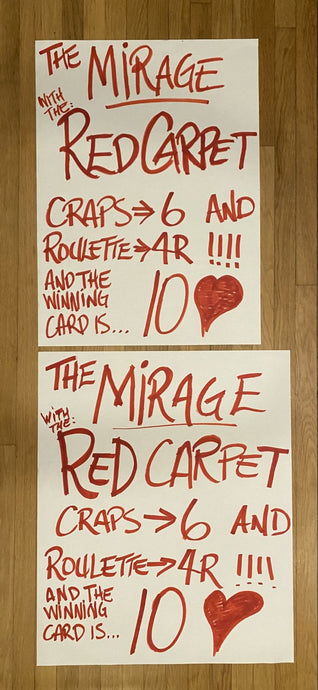 THE MIRAGE
WITH
THE:
RED CARPET
CRAPS→6 AND
ROULETTE→4R !!!!
AND THE
WINNING
CARD IS... 10 ♥
THE MIRAGE
WITH
THE:
RED CARPET
CRAPS→6 AND
ROULETTE→4R !!!!
AND THE
WINNING
CARD IS... 10 ♥